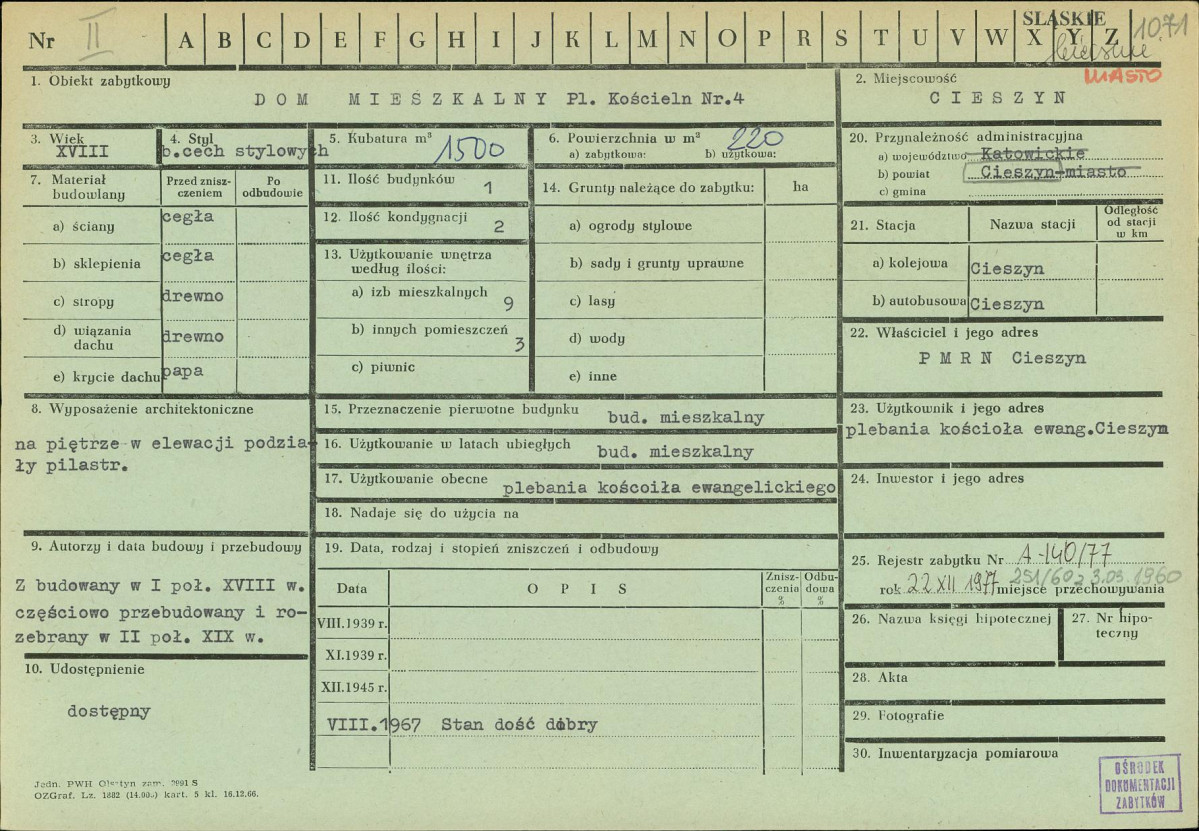 Nr II A B C D E F G H I J K L M N O P R S T U V W X Y Z
ŚLĄSKIE 1071
MIASTO
1. Obiekt zabytkowy
DOM MIESZKALNY Pl. Kościeln Nr.4
2. Miejscowość
CIESZYN
3. Wiek
XVIII
4. Styl
b.cech stylowych
5. Kubatura m³ 1500
6. Powierzchnia w m² 220
a) zabytkowa: b) użytkowa:
7. Materiał budowlany
Przed zniszczeniem
Po odbudowie
a) ściany cegła
b) sklepienia cegła
c) stropy drewno
d) wiązania dachu drewno
e) krycie dachu papa
8. Wyposażenie architektoniczne
na piętrze w elewacji podzia-
ły pilastr.
9. Autorzy i data budowy i przebudowy
Z budowany w I poł. XVIII w.
częściowo przebudowany i ro-
zebrany w II poł. XIX w.
10. Udostępnienie
dostępny
11. Ilość budynków 1
12. Ilość kondygnacji 2
13. Użytkowanie wnętrza
według ilości:
a) izb mieszkalnych 9
b) innych pomieszczeń 3
c) piwnic
14. Grunty należące do zabytku: ha
a) ogrody stylowe
b) sady i grunty uprawne
c) lasy
d) wody
e) inne
15. Przeznaczenie pierwotne budynku bud. mieszkalny
16. Użytkowanie w latach ubiegłych bud. mieszkalny
17. Użytkowanie obecne plebania kościoiła ewangelickiego
18. Nadaje się do użycia na
19. Data, rodzaj i stopień zniszczeń i odbudowy
Data OPIS Zniszczenia % Odbudowa %
VIII.1939 r.
XI.1939 r.
XII.1945 r.
VIII.1967 Stan dość dobry
20. Przynależność administracyjna
a) województwo Katowickie
b) powiat Cieszyn-miasto
c) gmina
21. Stacja
Nazwa stacji
Odległość od stacji w km
a) kolejowa Cieszyn
b) autobusowa Cieszyn
22. Właściciel i jego adres
PMRN Cieszyn
23. Użytkownik i jego adres
plebania kościoła ewang.Cieszyn
24. Inwestor i jego adres
25. Rejestr zabytku Nr A-140/77
251/60 z 3.03.1960
rok 22 XII 1977 miejsce przechowywania
26. Nazwa księgi hipotecznej
27. Nr hipo-
teczny
28. Akta
29. Fotografie
30. Inwentaryzacja pomiarowa
Jedn. PWH Olsztyn zam. 2991 S
OZGraf. Lz. 1882 (14.000) kart. 5 kl. 16.12.66.
OŚRODEK
DOKUMENTACJI
ZABYTKÓW